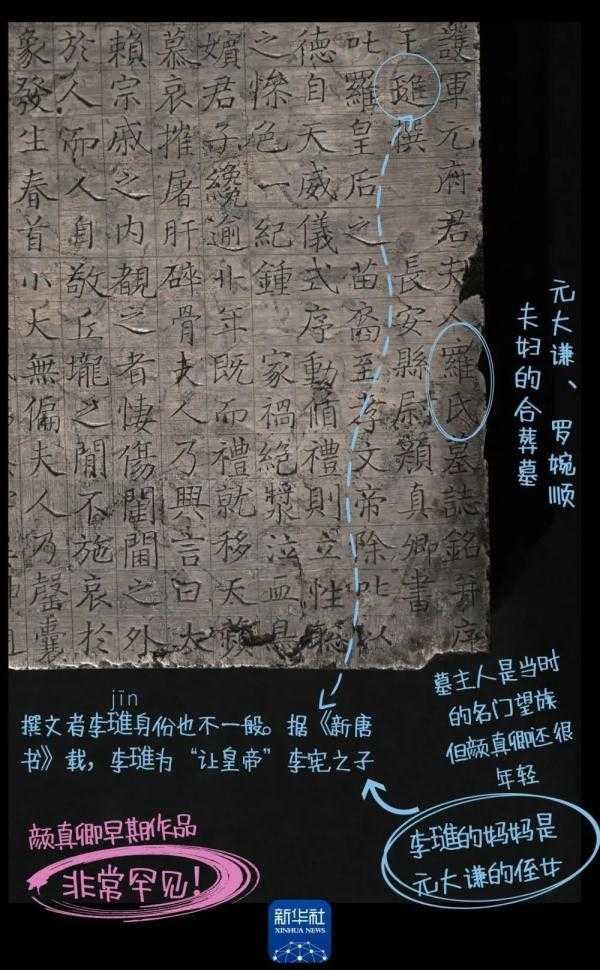 護軍元府君夫人羅氏墓誌銘并序
王璡撰 長安縣尉顏真卿書
叱羅皇后之苗裔至孝文帝除叱以
德自天威儀式序動循禮則立性聰
之慘色一紀鍾 家禍絕漿泣血
嬪君子纔逾廿年既而禮就移天
慕哀摧屠肝碎骨夫人乃興言曰大
賴宗戚之內覩之者悽傷閨閫之外
於人而人自敬丘壠之間不施哀於
象發生春首小大無偏夫人乃罄囊
元大谦、罗婉顺
夫妇的合葬墓
jīn
撰文者李璡身份也不一般。据《新唐
书》载，李璡为“让皇帝”李宪之子
墓主人是当时
的名门望族
但颜真卿还很
年轻
李璡的妈妈是
元大谦的侄女
颜真卿早期作品
非常罕见！
新华社
XINHUA NEWS